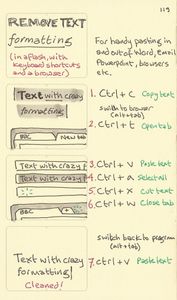 119
REMOVE TEXT
formatting
(in a flash, with
keyboard shortcuts
and a browser)
For handy pasting in
and out of Word, Email
Powerpoint, browsers
etc.
Text with crazy
formatting!
1. Ctrl + C Copy text
switch to browser
(alt+tab)
2. Ctrl + t Open tab
BBC New tab
Text with crazy f
Text with crazy f
BBC
3. Ctrl + V Paste text
4. Ctrl + a Select All
5. Ctrl + X Cut text
6. Ctrl + W Close tab
Text with crazy
formatting!
Cleaned!
switch back to program
(alt+tab)
7. Ctrl + V Paste text